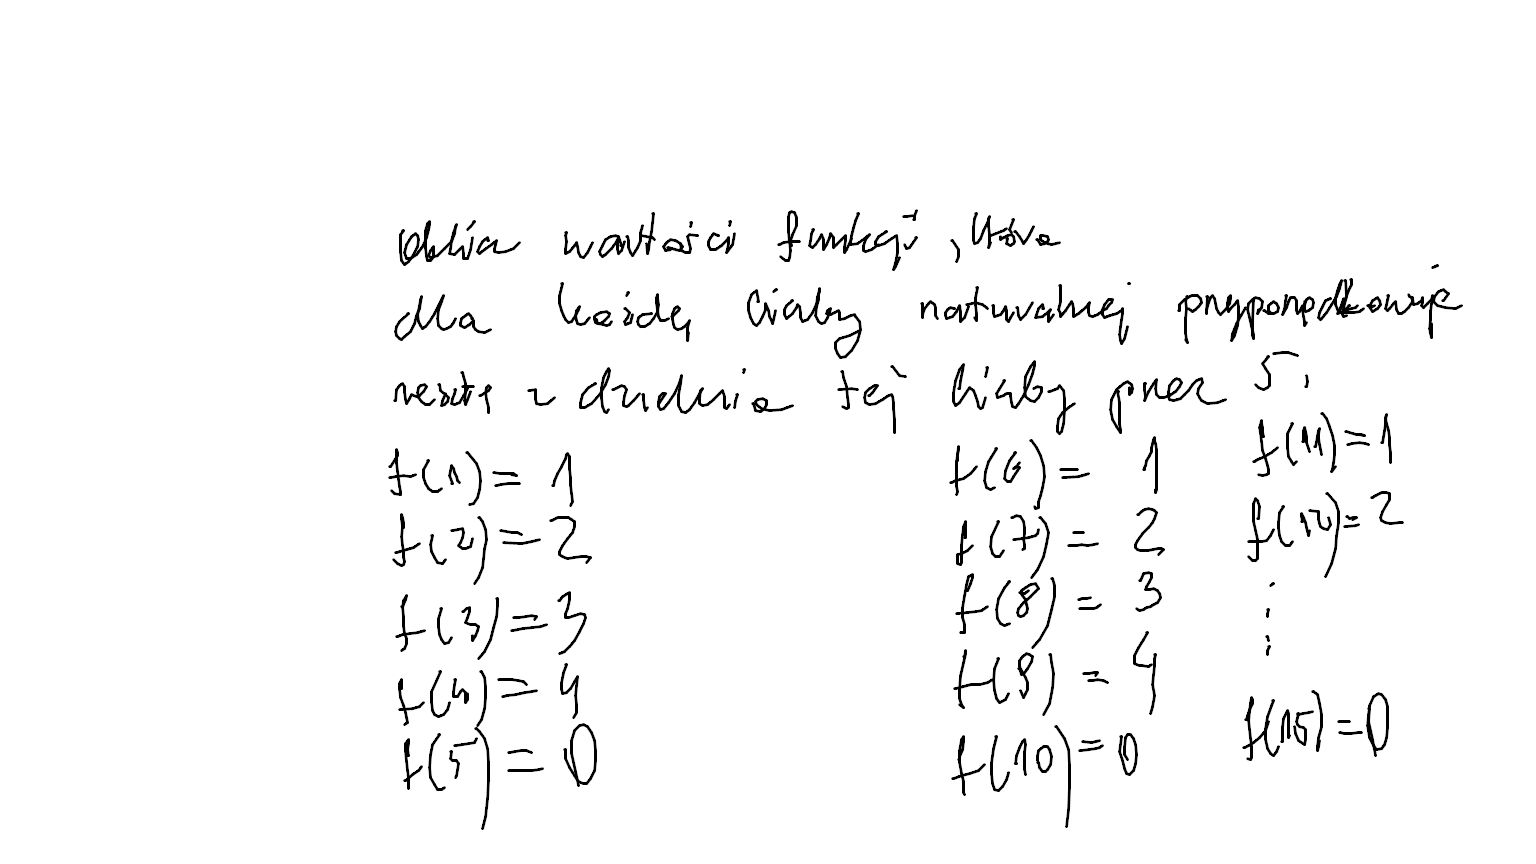 oblicz wartości funkcji, która
dla każdej liczby naturalnej przyporządkowuje
resztę z dzielenia tej liczby przez 5.
f(1) = 1
f(2) = 2
f(3) = 3
f(4) = 4
f(5) = 0
f(6) = 1
f(7) = 2
f(8) = 3
f(9) = 4
f(10) = 0
f(11) = 1
f(12) = 2
⋮
f(15) = 0